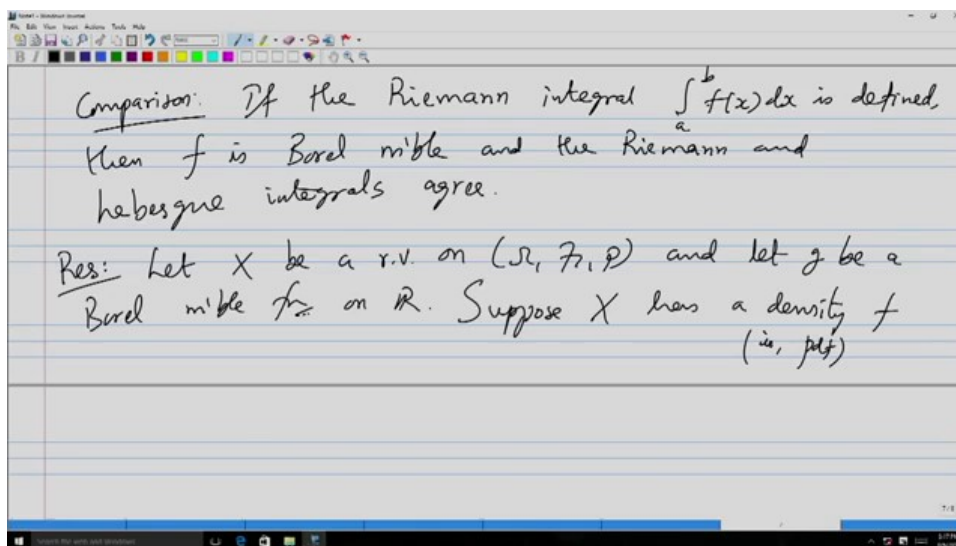 Note1 - Windows Journal
File Edit View Insert Actions Tools Help
B I
Comparison: If the Riemann integral ∫_a^b f(x)dx is defined,
then f is Borel m'ble and the Riemann and
Lebesgue integrals agree.
Res: Let X be a r.v. on (Ω, ℱ, P) and let g be a
Borel m'ble fn on ℝ. Suppose X has a density f
(ie, pdf)
7/8
Search the web and Windows